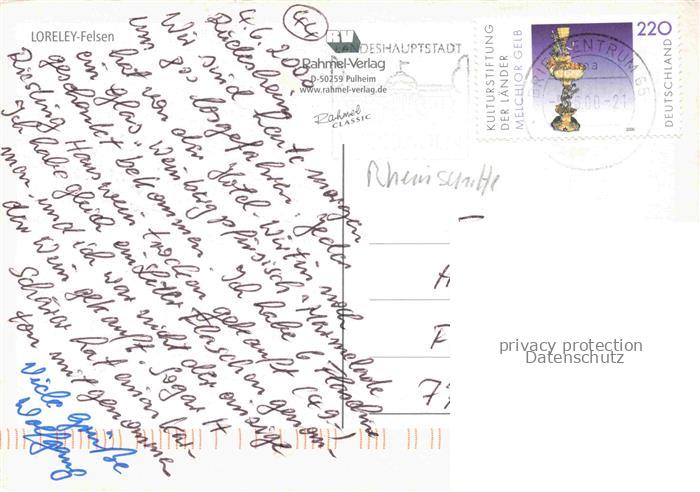 LORELEY-Felsen
44
RV
Rahmel-Verlag
D-50259 Pulheim
www.rahmel-verlag.de
Rahmel
CLASSIC
LANDESHAUPTSTADT
BRIEFZENTRUM 65
KULTURSTIFTUNG
DER LÄNDER
MELCHIOR GELB
220
DEUTSCHLAND
Rheinschiffe
4.6.200
Wir sind heute morgen
um 8° losgefahren. Jeder
hat von der Hotel-Wirtin noch
ein Glas
geschenkt bekommen. Ich habe 6 Flaschen
Riesling Hauswein trocken gekauft
Ich habe gleich Flaschen genom-
men und ich war nicht der einzige
der Wein gekauft. Sogar H
Schürer hat einen Kar-
ton mitgenommen
Viele Grüße
Wolfgang
privacy protection
Datenschutz